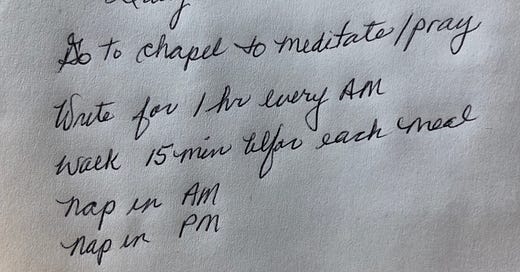 Go to chapel to meditate/pray
Write for 1 hr every AM
Walk 15 min befor each meal
nap in AM
nap in PM